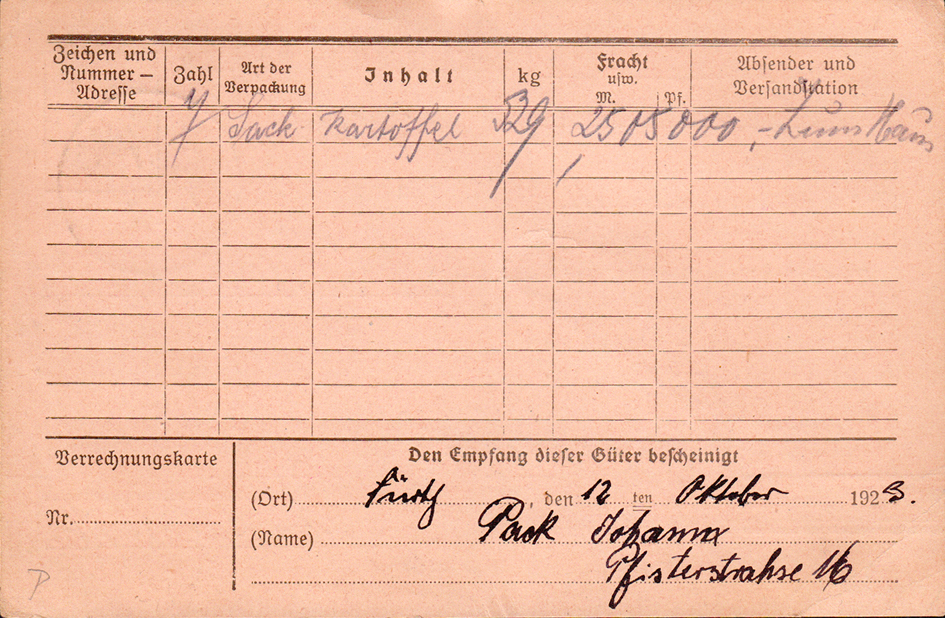 Zeichen und Nummer - Adresse
Zahl
Art der Verpackung
Inhalt
kg
Fracht usw.
M.
Pf.
Absender und Versandstation
7 Sack Kartoffel 329 2505000,-
Verrechnungskarte
Nr.
Den Empfang dieser Güter bescheinigt
(Ort) Fürth, den 12 ten Oktober 1923.
(Name) Pack Johann
Pfisterstrahse 16
P